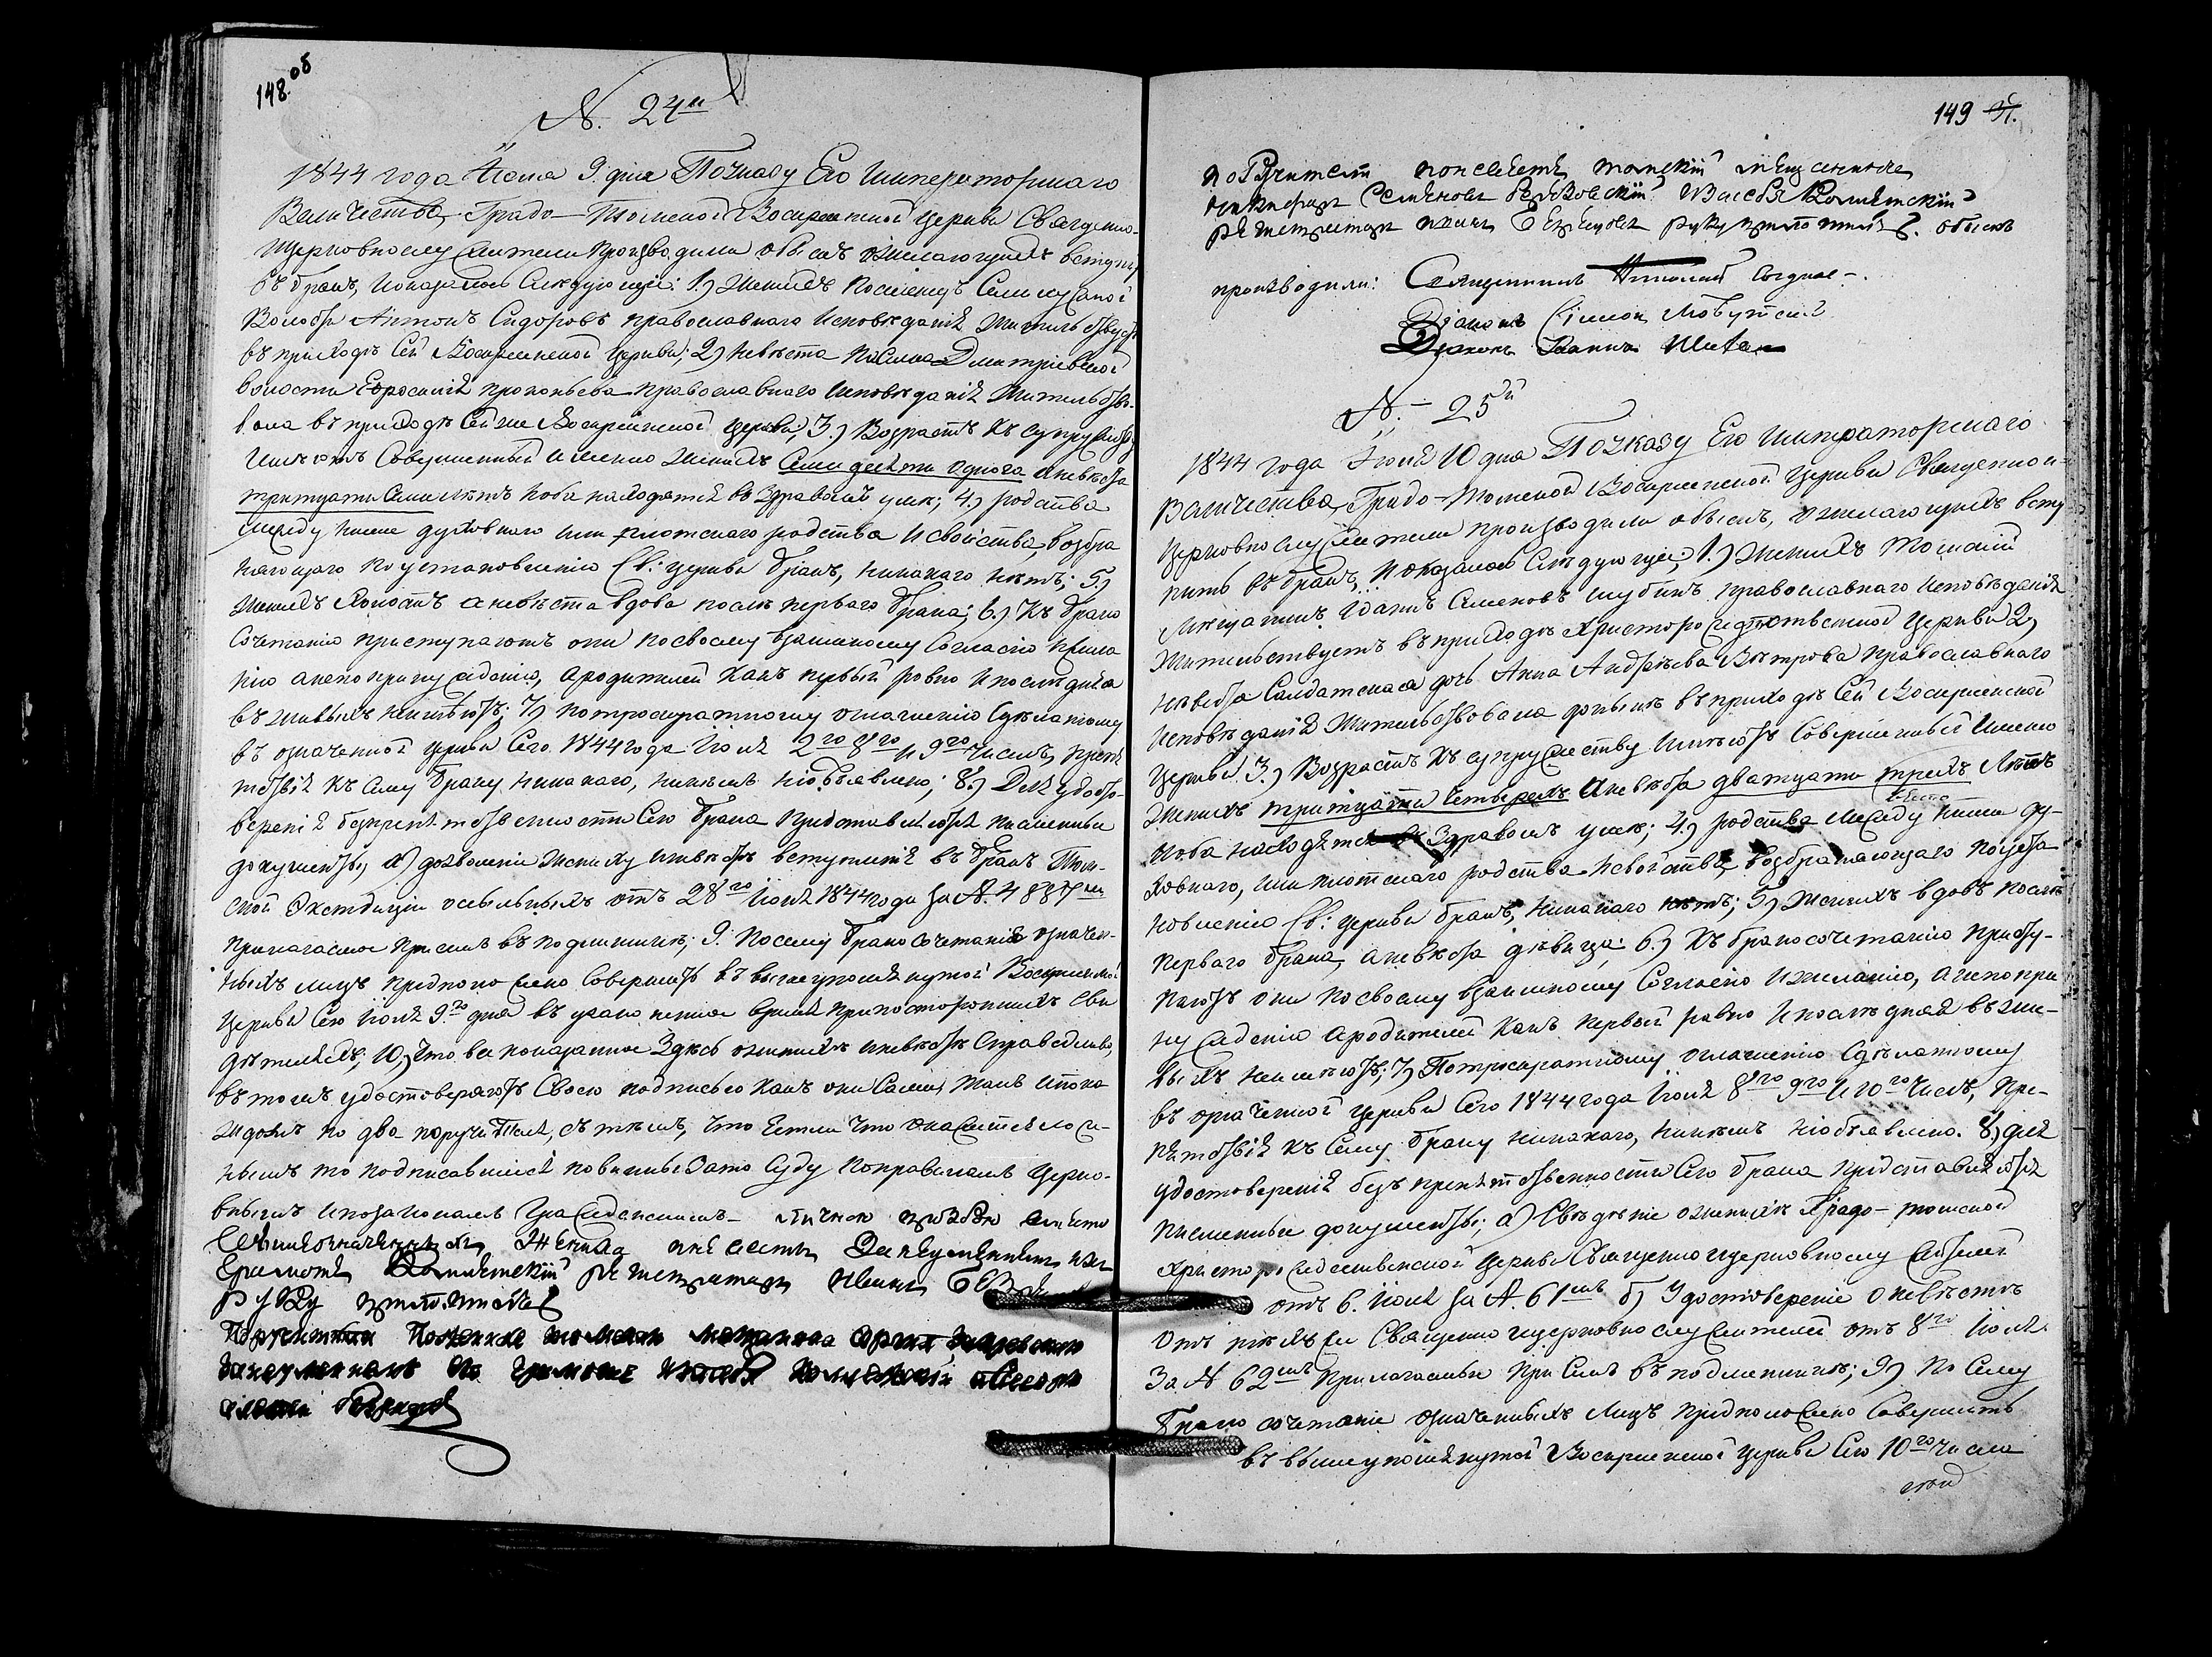 148 об
N. 24й
1844 года Іюля 9. дня По указу Его Императорскаго
Величества, Градо-Томской Воскресенской церкви Священно-
церковнослужители производили обыскъ о желающихъ вступи
въ бракъ, и оказалось следующее: 1.) Женихъ поселенецъ Семилужной
Волости Антонъ Сидоровъ православнаго исповѣданія жительствуетъ
въ приходѣ сей Воскресенской церкви; 2) невѣста Дмитріевской
волости Евросинія Прокопьева православнаго исповѣданія жительство-
вала въ приходѣ сей же Воскресенской церкви; 3.) Возрастъ къ супружеству
имѣютъ совершенный и именно женихъ семидесяти одного а невѣста
тритцати семи лѣтъ и оба находятся въ здравомъ умѣ; 4.) родства
между ими духовнаго или плотскаго родства и свойства возбра
няющаго по установленію Св: церкви бракъ, никакаго нѣтъ; 5.)
Женихъ холостъ а невѣста вдова послѣ перваго брака; 6.) Къ брако
сочетанію приступаютъ они по своему взаимному согласію и жела
нію а не по принужденію, а родителей какъ первый равно и послѣдняя
въ живыхъ неимѣютъ; 7.) по троекратному оглашенію сдѣланному
въ означенной церкви сего 1844 года Іюля 2го 8го и 9го числъ, препя
тствія къ сему браку никакаго, никѣмъ необъявлено; 8.) Для удосто-
веренія безпрепятственности сего брака представляются письменные
документы, а) дозволеніе жениху и невѣстѣ вступленія въ бракъ Том-
ской Экспедиціи о ссыльныхъ отъ 28го Іюня 1844 года за N. 4887мъ
прилагаемое при семъ въ подлинникѣ; 9. По сему бракосочетаніе означен-
ныхъ лицъ предположено совершить въ вышеупомянутой Воскресенской
церкви сего Іюля 9го дня въ узаконенное время при постороннихъ сви
дѣтеляхъ; 10.) Что все показанное здѣсь о женихѣ и невѣстѣ справедливо,
въ томъ удостоверяютъ своею подписью какъ они сами, такъ и по ка
ждомъ по два поручителя, съ тѣмъ, что естли что окажется лож-
нымъ то подписавшіеся повинны за то суду по правиламъ церко-
внымъ и по законамъ гражданскимъ.
Вышеозначенныхъ Жениха и невесты
грамоте Коллежскій регистраторъ Иванъ
руку приложилъ
149
поручители по невестѣ томскій мещанинъ
Семеновъ Коллежскій
регистраторъ Иванъ руку приложилъ. обыскъ
производили: Священникъ Николай
Діаконъ Симеон
Дьяконъ Іоаннъ
N. 25й
1844 года Іюля 10 дня По указу Его Императорскаго
Величества, Градо-Томской Воскресенской церкви Священно-
церковнослужители производили обыскъ, о желающихъ всту
пить въ бракъ, и оказалось слѣдующее, 1.) Женихъ Томскій
Мѣщанинъ Семеновъ Шубинъ православнаго исповѣданія
жительствуетъ въ приходѣ Христорождественской церкви 2.)
Невеста солдатская дочь Анна Андреева Вѣтрова православнаго
исповѣданія жительствовала донынѣ въ приходѣ сей Воскресенской
церкви. 3.) Возрастъ къ супружеству имѣютъ совершенный и именно
женихъ тритцати четырехъ а невѣста дватцати трехъ лѣтъ
и оба находятся въ здравомъ умѣ; 4.) родства между ими ду-
ховнаго, или плотскаго родства и свойства, возбраняющаго по уста
новленію Св: церкви бракъ, никакаго нѣтъ; 5.) Женихъ вдовъ послѣ
перваго брака, а невѣста дѣвица; 6.) Къ бракосочетанію присту-
паютъ они по своему взаимному согласію и желанію, а не по при
нужденію а родителей какъ первый равно и послѣдняя въ жи-
выхъ неимѣютъ; 7.) По троекратному оглашенію сдѣланному
въ означенной церкви сего 1844 года Іюля 8го 9го и 10го числъ, пре-
пятствія къ сему браку никакаго, никѣмъ необъявлено. 8.) Для
удостоверенія безъпрепятственности сего брака представляются
письменные документы; а) Сведѣніе о женихѣ Градо-Томской
Христорождественской церкви Священноцерковнослужителей
отъ 6. Іюля за N. 61мъ б) Удостовереніе о невѣстѣ
отъ тѣхъ же Священноцерковнослужителей отъ 8го Іюля
за N 62мъ прилагаемыя при семъ въ подлинникѣ; 9.) По сему
бракосочетаніе означенныхъ лицъ предположено совершить
въ вышеупомянутой Воскресенской церкви сего 10го числа